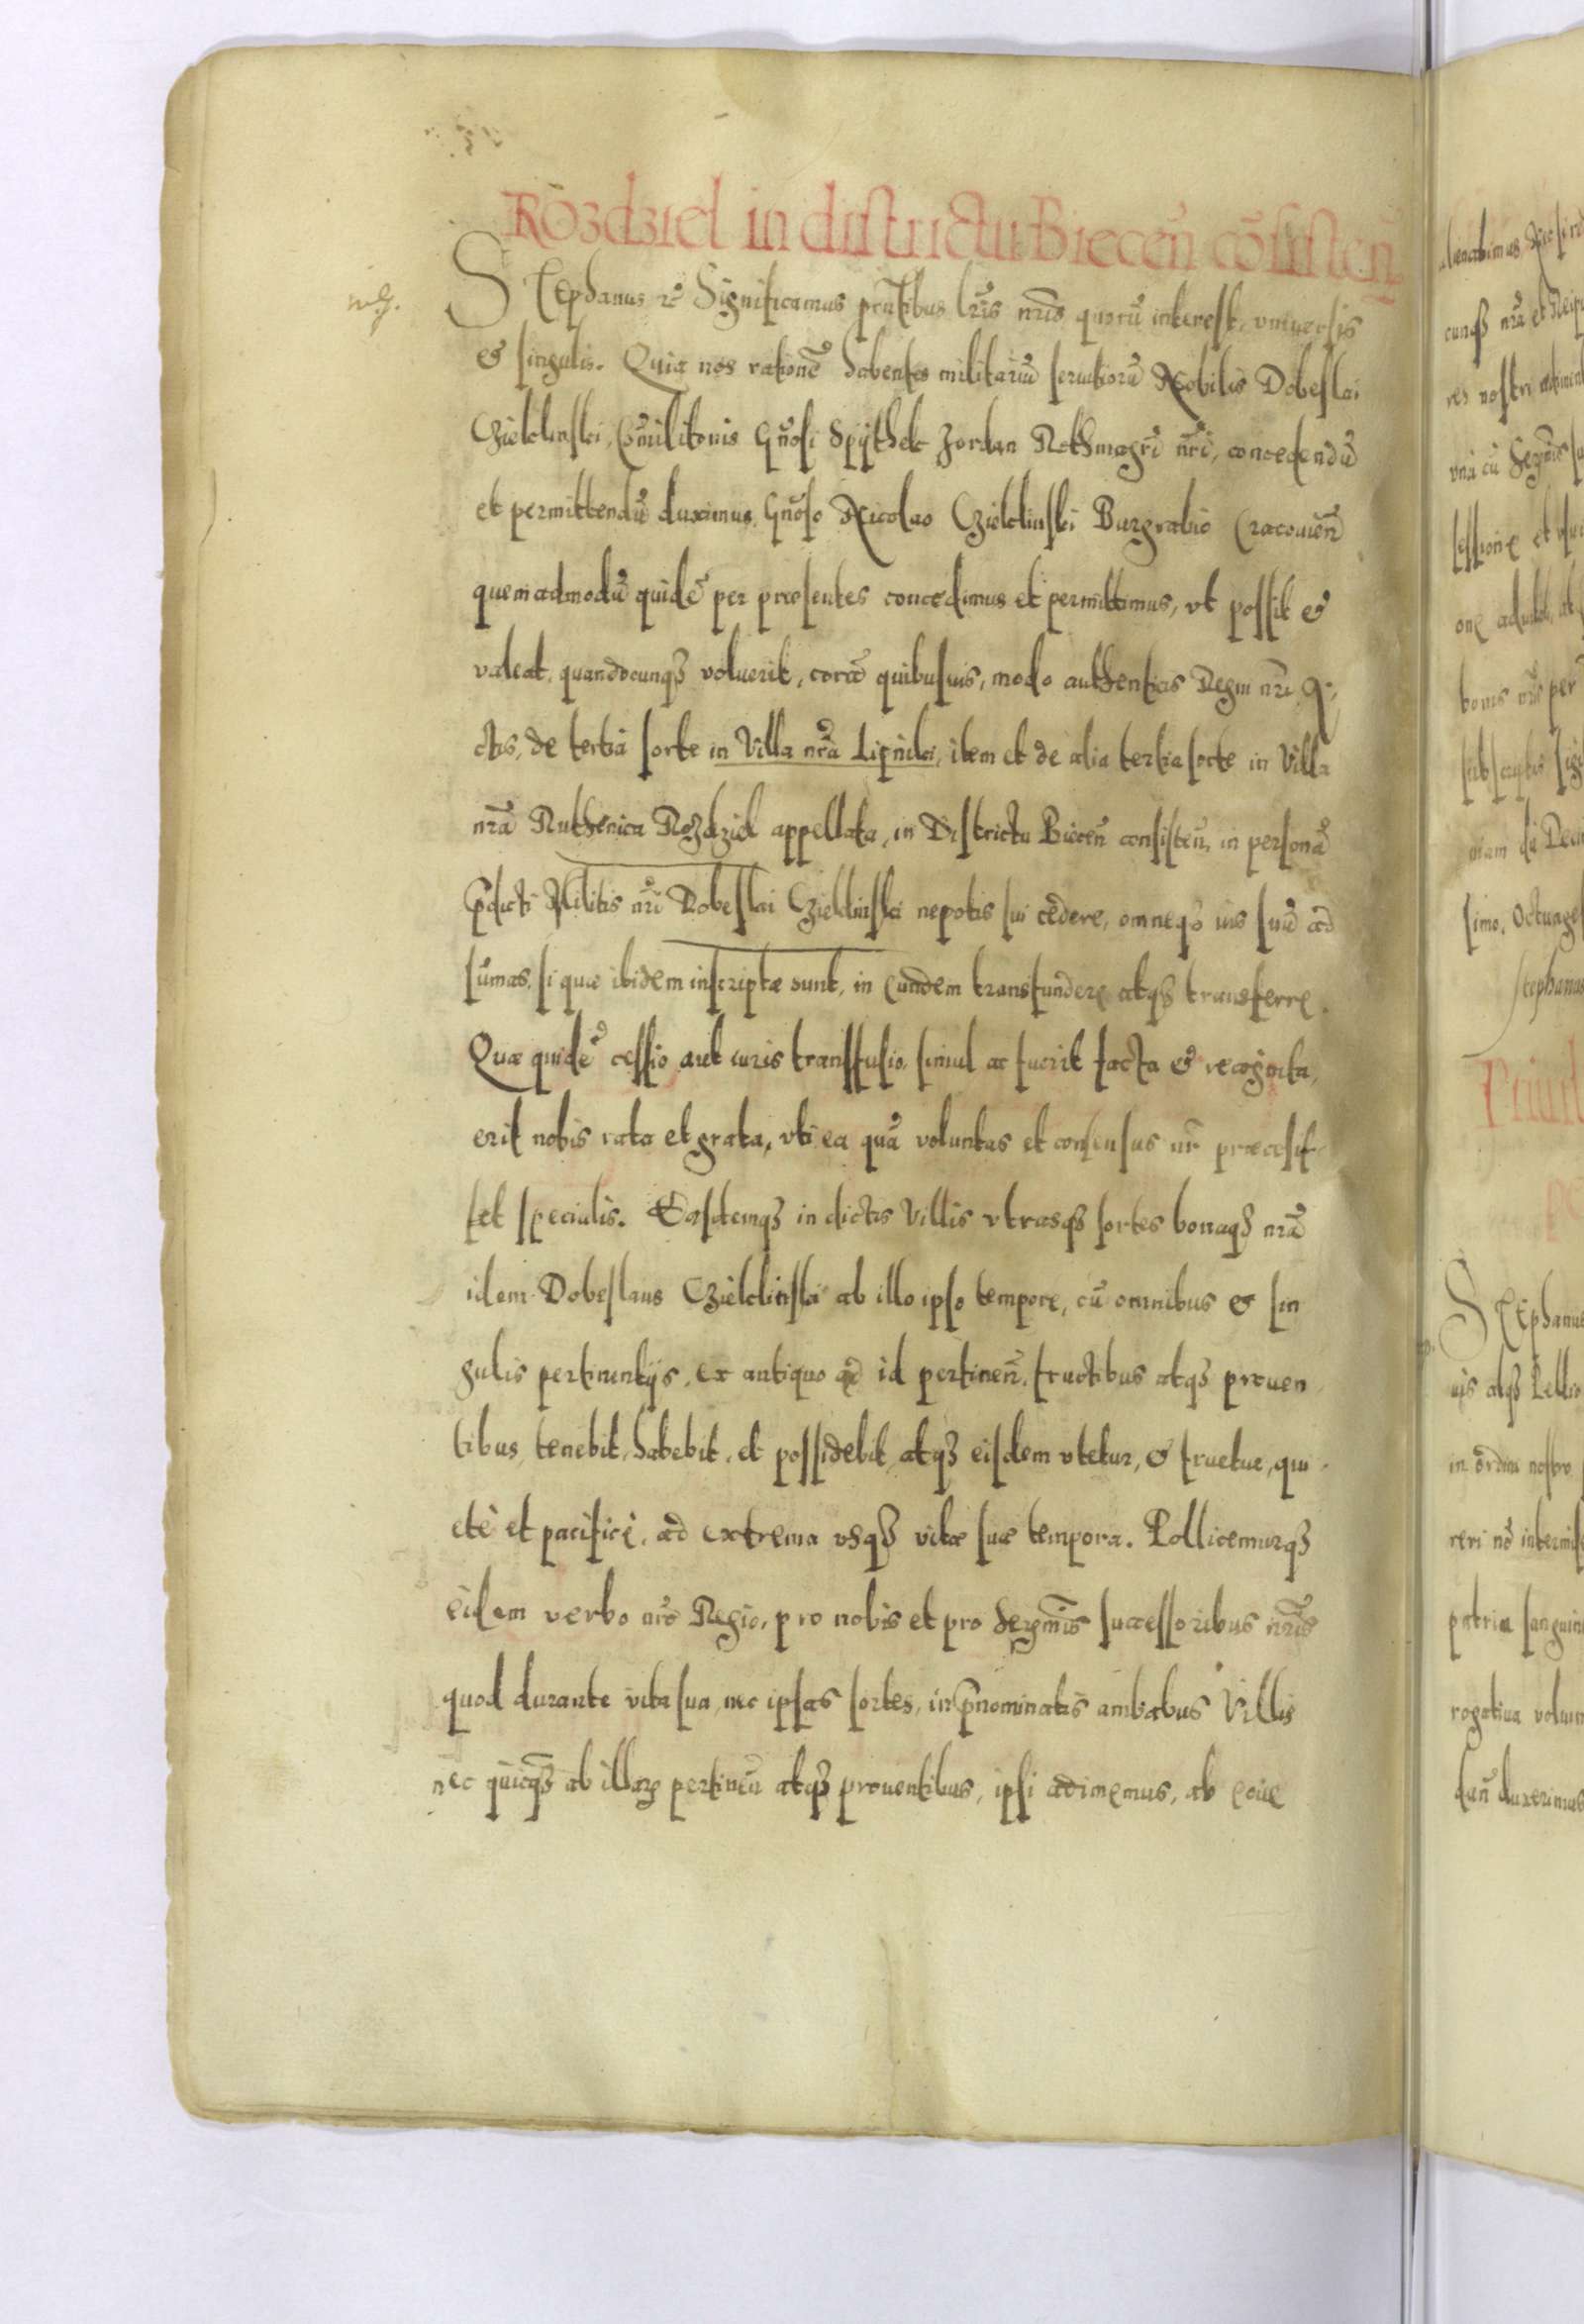 Rozdziel in districtu Biecen̄ cōsisten̄
Stephanus ꝛc̄ Significamus pn̄tibus lr̄is nr̄is quorū interest, vniuersis
et singulis. Quia nos rationē habentes militariū seruitiorū Nobilis Dobeslai
Czieklinski, Cōmilitonis Gn̄osi Spÿthek Jordan Rothmagr̄i nr̄i, concedendū
et permittendū duximus Gn̄oso Nicolao Czieklinski Burgrabio Cracouien̄
quemadmodū quidē per præsentes concedimus et permittimus, vt possit et
valeat, quandocunqꝫ voluerit, corā quibusuis, modo authenticis Regni nr̄i
ctis, de tertia sorte in Villa nr̄a Lipniki, item et de alia tertia sorte in Villa
nr̄a Ruthenica Rozdziel appellata, in Districtu Biecen̄ consisten̄, in personā
p̄dicti Militis nr̄i Dobeslai Czieklinski nepotis sui cedere, omneqꝫ ius suū ad
sūmas, si quæ ibidem inscriptæ sunt, in eundem transfundere atqꝫ transferre.
Quæ quidē cessio aut iuris transfusio, simul ac fuerit facta et recognita,
erit nobis rata et grata, vti ea quā voluntas et consensus nr̄ præcesis-
set specialis. Easdemqꝫ in dictis Villis vtrasqꝫ sortes bonaqꝫ nr̄a
idem Dobeslaus Czieklinski ab illo ipso tempore, cū omnibus et sin
gulis pertinentijs, ex antiquo ad id pertinen̄, fructibus atqꝫ prouen
tibus, tenebit, habebit, et possidebit, atqꝫ eisdem vtetur, et fruetur, qui-
etè et pacificè, ad extrema vsqꝫ vitæ suæ tempora. Pollicemurqꝫ
eidem verbo nr̄o Regio, pro nobis et pro Serenmīs successoribus nr̄is
quod durante vita sua, nec ipsas sortes, in p̄nominatis ambabus Villis
nec quicqꝫ ab illarꝫ pertinen̄ atqꝫ prouentibus, ipsi adimemus, ab eoue